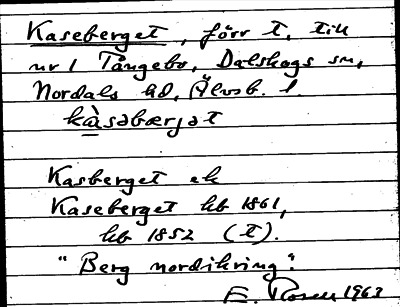 Kaseberget, förr t. till
nr 1 Tångebo, Dalskogs sn,
Nordals hd, Älvsb. l.
kàsəbærjət
Kasberget ek
Kaseberget hb 1861,
hb 1852 (t).
"Berg nordikring".
E. Rosen 1963